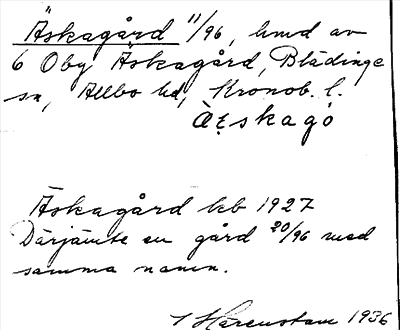 Äskagård 11/96, hmd av
6 Oby Äskagård, Blädinge
sn, Allbo hd, Kronob. l.
Äskagård kb 1927
Därjämte en gård 20/96 med
samma namn.
1936